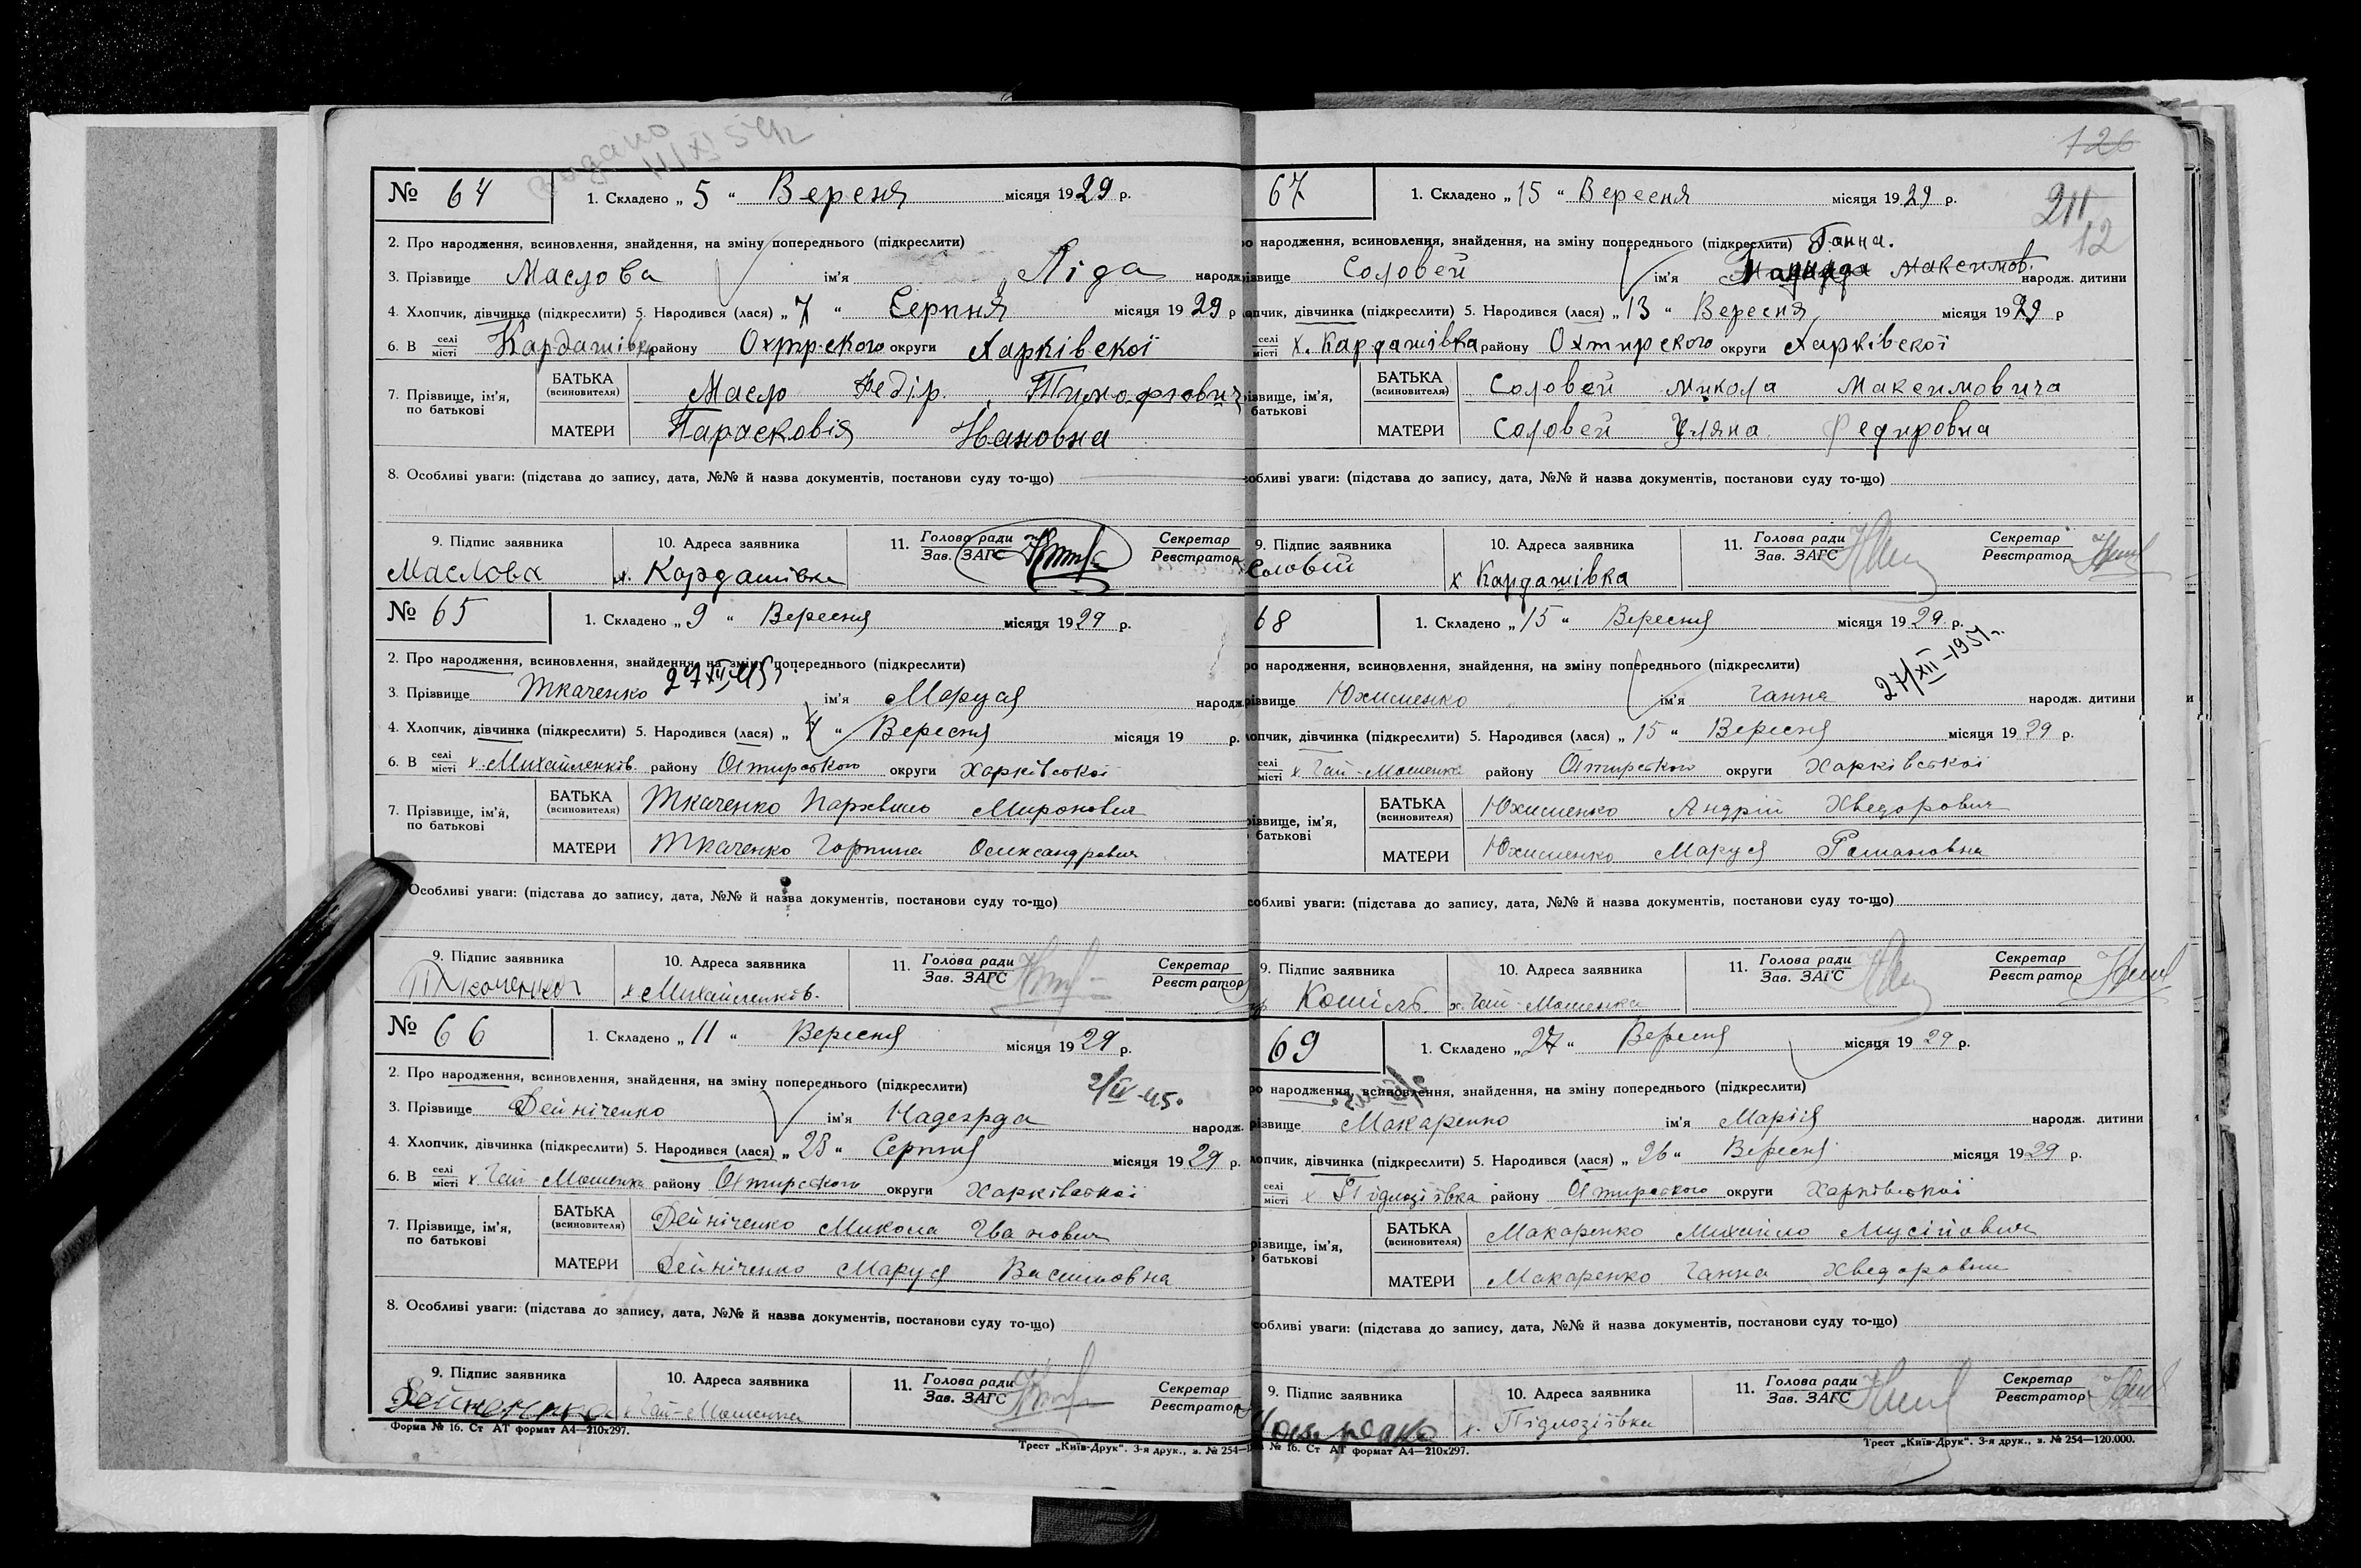 Видано
11/XI 54 р
№ 64 1. Складено „ 5 “ Вересня місяця 1929 р.
2. Про народження, всиновлення, знайдення, на зміну попереднього (підкреслити)
3. Прізвище Маслова ім'я Ліда народж
4. Хлопчик, дівчинка (підкреслити) 5. Народився (лася) „ 7 “ Серпня місяця 1929 р
6. В селі місті Кардашівка району Охтирського округи Харківської
7. Прізвище, ім'я, по батькові БАТЬКА (всиновителя) Масло Федір Тимофіович
МАТЕРИ Парасковія Ивановна
8. Особливі уваги: (підстава до запису, дата, №№ й назва документів, постанови суду то-що)
9. Підпис заявника 10. Адреса заявника 11. Голова ради Зав. ЗАГС Секретар Реєстратор
Маслова х. Кардашівка
№ 65 1. Складено „ 9 “ Вересня місяця 1929 р.
2. Про народження, всиновлення, знайдення, на зміну попереднього (підкреслити)
27 XII 45
3. Прізвище Ткаченко ім'я Маруся народж
4. Хлопчик, дівчинка (підкреслити) 5. Народився (лася) „ 4 “ Вересня місяця 19 р.
6. В селі місті х. Михайленків. району Охтирського округи Харківської
7. Прізвище, ім'я, по батькові БАТЬКА (всиновителя) Ткаченко Пархвило Миронович
МАТЕРИ Ткаченко Горпина Олександрович
Особливі уваги: (підстава до запису, дата, №№ й назва документів, постанови суду то-що)
9. Підпис заявника 10. Адреса заявника 11. Голова ради Зав. ЗАГС Секретар Реєстратор
Ткаченко х Михайленків.
№ 66 1. Складено „ 11 “ Вересня місяця 1929 р.
2. Про народження, всиновлення, знайдення, на зміну попереднього (підкреслити)
2/IV-45.
3. Прізвище Дейніченко ім'я Надезрда народж.
4. Хлопчик, дівчинка (підкреслити) 5. Народився (лася) „ 28 “ Серпня місяця 1929 р.
6. В селі місті х. Гай-Мошенка району Охтирського округи Харківської
7. Прізвище, ім'я, по батькові БАТЬКА (всиновителя) Дейніченко Микола Іванович
МАТЕРИ Дейніченко Маруся Василовна
8. Особливі уваги: (підстава до запису, дата, №№ й назва документів, постанови суду то-що)
9. Підпис заявника 10. Адреса заявника 11. Голова ради Зав. ЗАГС Секретар Реєстратор
Дейниченко х Гай-Мошенка
Форма № 16. Ст АТ формат А4—210х297.
Трест „Київ-Друк“. 3-я друк., з. № 254—1
126
211
12
67 1. Складено „ 15 “ Вересня місяця 1929 р.
о народження, всиновлення, знайдення, на зміну попереднього (підкреслити) Ганна.
ізвище Соловей ім'я Максимов. народж. дитини
опчик, дівчинка (підкреслити) 5. Народився (лася) „ 13 “ Вересня місяця 1929 р
селі місті х. Кардашівка району Охтирского округи Харківської
ізвище, ім'я, батькові БАТЬКА (всиновителя) Соловей Микола Максимовича
МАТЕРИ Соловей Уляна Федировна
собливі уваги: (підстава до запису, дата, №№ й назва документів, постанови суду то-що)
9. Підпис заявника 10. Адреса заявника 11. Голова ради Зав. ЗАГС Секретар Реєстратор
Соловій х Кардашівка
68 1. Складено „ 15 “ Вересня місяця 1929 р.
ро народження, всиновлення, знайдення, на зміну попереднього (підкреслити)
27/XII-1951 г.
ізвище Юхименко ім'я Ганна народж. дитини
опчик, дівчинка (підкреслити) 5. Народився (лася) „ 15 “ Вересня місяця 1929 р.
селі місті х. Гай-Мошенка району Охтирського округи Харківської
ізвище, ім'я, батькові БАТЬКА (всиновителя) Юхименко Андрій Хведорович
МАТЕРИ Юхименко Маруся Романовна
собливі уваги: (підстава до запису, дата, №№ й назва документів, постанови суду то-що)
9. Підпис заявника 10. Адреса заявника 11. Голова ради Зав. ЗАГС Секретар Реєстратор
Кошіль. х. Гай-Мошенка
69 1. Складено „ 27 “ Вересня місяця 1929 р.
ро народження, всиновлення, знайдення, на зміну попереднього (підкреслити)
різвище Макаренко ім'я Марія народж. дитини
опчик, дівчинка (підкреслити) 5. Народився (лася) „ 26 “ Вересня місяця 1929 р.
селі місті х Підлозіївка району Охтирського округи Харківської
різвище, ім'я, батькові БАТЬКА (всиновителя) Макаренко Михайло Мусійович
МАТЕРИ Макаренко Ганна Хведоровни
собливі уваги: (підстава до запису, дата, №№ й назва документів, постанови суду то-що)
9. Підпис заявника 10. Адреса заявника 11. Голова ради Зав. ЗАГС Секретар Реєстратор
х. Підлозіївка
№ 16. Ст АТ формат А4—210х297.
Трест „Київ-Друк“. 3-я друк., з. № 254—120.000.